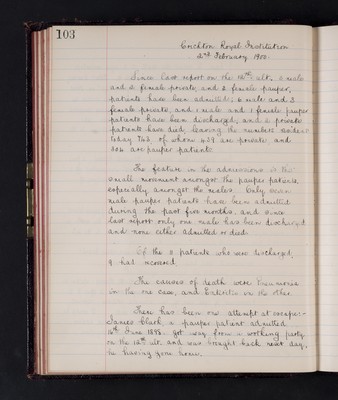 103
Crichton Royal Institution
2nd February 1900.
Since last report on the 12th ult. 3 male
and 2 female private, and 2 female pauper,
patients have been admitted; 6 male and 3
female private, and 1 male and 1 female pauper
patients have been discharged; and 2 private
patients have died, leaving the numbers resident
today 763, of whom 459 are private and
304 are pauper patients.
The feature in the admissions is the
small movement amongst the pauper patients,
especially amongst the males. Only seven
male pauper patients have been admitted
during the past five months, and since
last report only one male has been discharged
and none either admitted or died.
Of the 11 patients who were discharged,
9 had recovered.
The causes of death were Pneumonia
in the one case, and in the other.
There has been one attempt at escape:-
James Clark, a pauper patient admitted
June 1898, got away from a working party
on the 12th ult. and was brought back next day,
he having gone home.